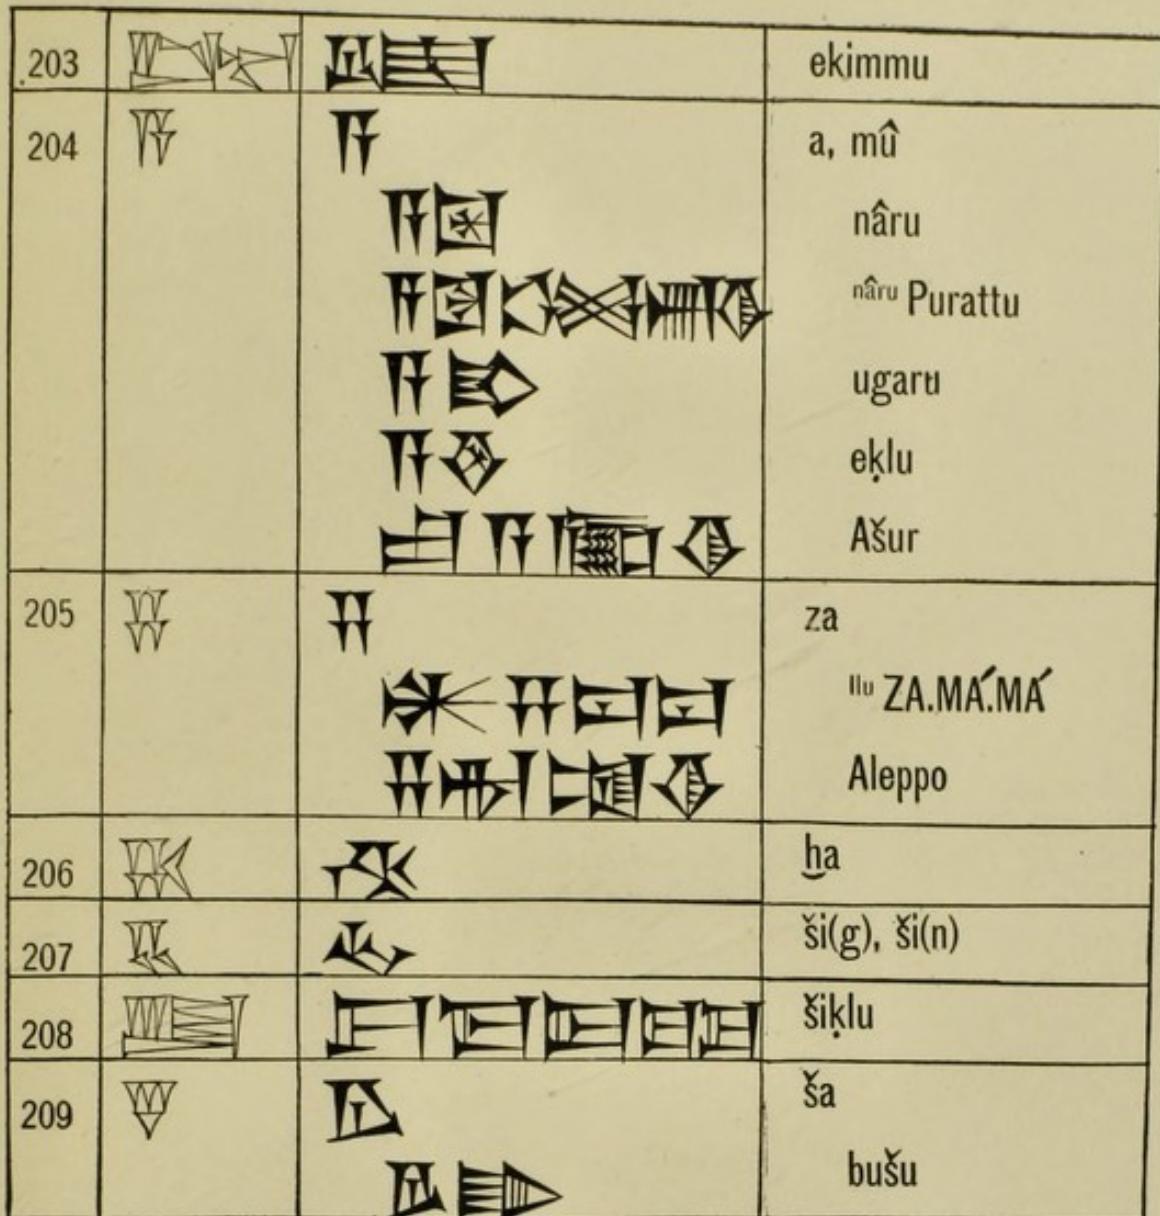 203 ekimmu
204 𒀀 a, mû
𒀀𒇉 nâru
𒀀𒇉𒌓𒄒𒉣𒆠 nâru Purattu
𒀀𒃼 ugaru
𒀀𒊮 eḳlu
Ašur
205 𒍝 za
𒀭𒍝𒂷𒂷 Ilu ZA.MÁ.MÁ
Aleppo
206 𒄩 ḫa
207 ši(g), ši(n)
208 šiḳlu
209 𒃻 ša
𒃻𒂵 bušu